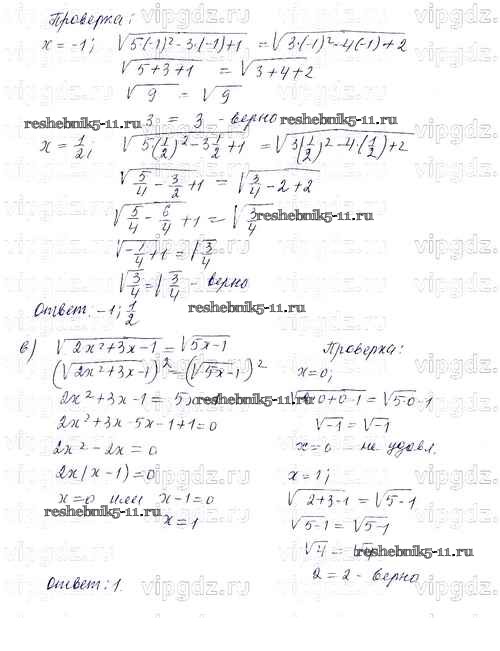 Проверка:
x = -1; √5·(-1)²-3·(-1)+1 = √3·(-1)²-4(-1)+2
√5+3+1 = √3+4+2
√9 = √9
3 = 3 - верно
reshebnik5-11.ru reshebnik5-11.ru
x = 1/2; √5(1/2)²-3 1/2+1 = √3(1/2)²-4·(1/2)+2
√5/4 - 3/2 + 1 = √3/4 - 2 + 2
√5/4 - 6/4 + 1 = √3/4
reshebnik5-11.ru
√-1/4 + 1 = √3/4
√3/4 = √3/4 - верно
Ответ: -1; 1/2
reshebnik5-11.ru
в) √2x²+3x-1 = √5x-1
(√2x²+3x-1)² = (√5x-1)²
2x²+3x-1 = 5x
reshebnik5-11.ru
2x²+3x-5x-1+1=0
2x²-2x=0
2x(x-1)=0
x=0 или x-1=0
reshebnik5-11.ru
x=1
Ответ: 1.
Проверка:
x=0;
√2·0+0-1 = √5·0-1
√-1 = √-1
x=0 - не удовл.
x=1;
√2+3-1 = √5-1
√5-1 = √5-1
√4 = √4
reshebnik5-11.ru
2=2 - верно
vipgdz.ru